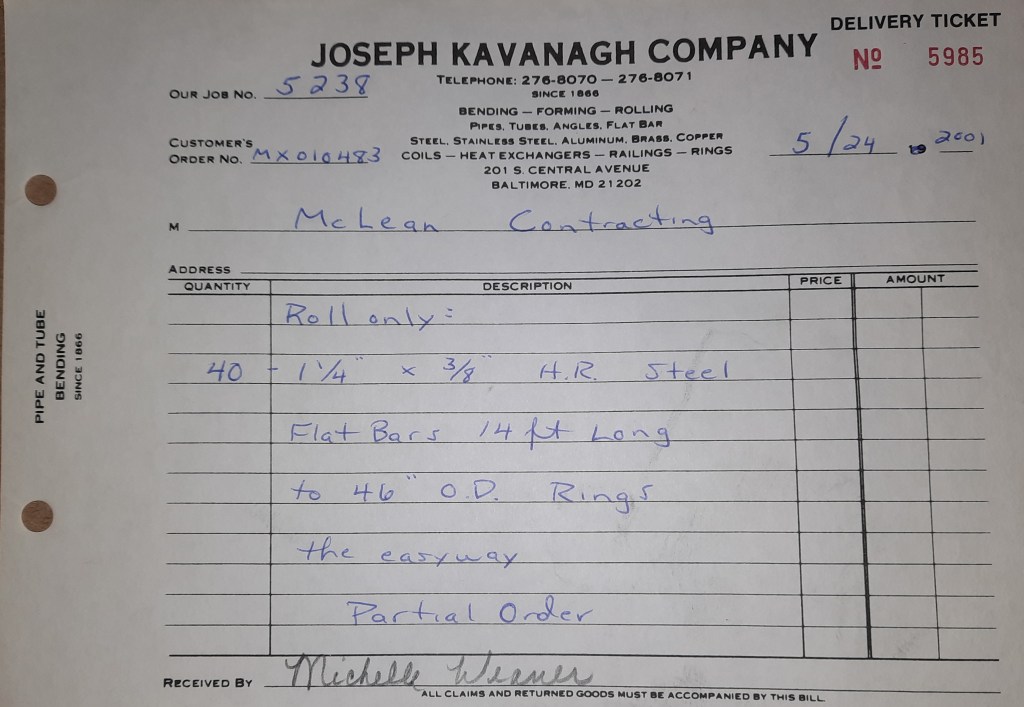 DELIVERY TICKET
JOSEPH KAVANAGH COMPANY
Nº 5985
TELEPHONE: 276-8070 — 276-8071
SINCE 1866
OUR JOB NO. 5238
BENDING — FORMING — ROLLING
PIPES, TUBES, ANGLES, FLAT BAR
STEEL, STAINLESS STEEL, ALUMINUM, BRASS, COPPER
COILS — HEAT EXCHANGERS — RAILINGS — RINGS
201 S. CENTRAL AVENUE
BALTIMORE, MD 21202
CUSTOMER'S
ORDER NO. MX010483
5/24 19 2001
M McLean Contracting
ADDRESS
QUANTITY DESCRIPTION PRICE AMOUNT
Roll only:
40 - 1 1/4" x 3/8" H.R. Steel
Flat Bars 14 ft Long
to 46" O.D. Rings
the easyway
Partial Order
RECEIVED BY Michelle Weaver
ALL CLAIMS AND RETURNED GOODS MUST BE ACCOMPANIED BY THIS BILL.
PIPE AND TUBE
BENDING
SINCE 1866